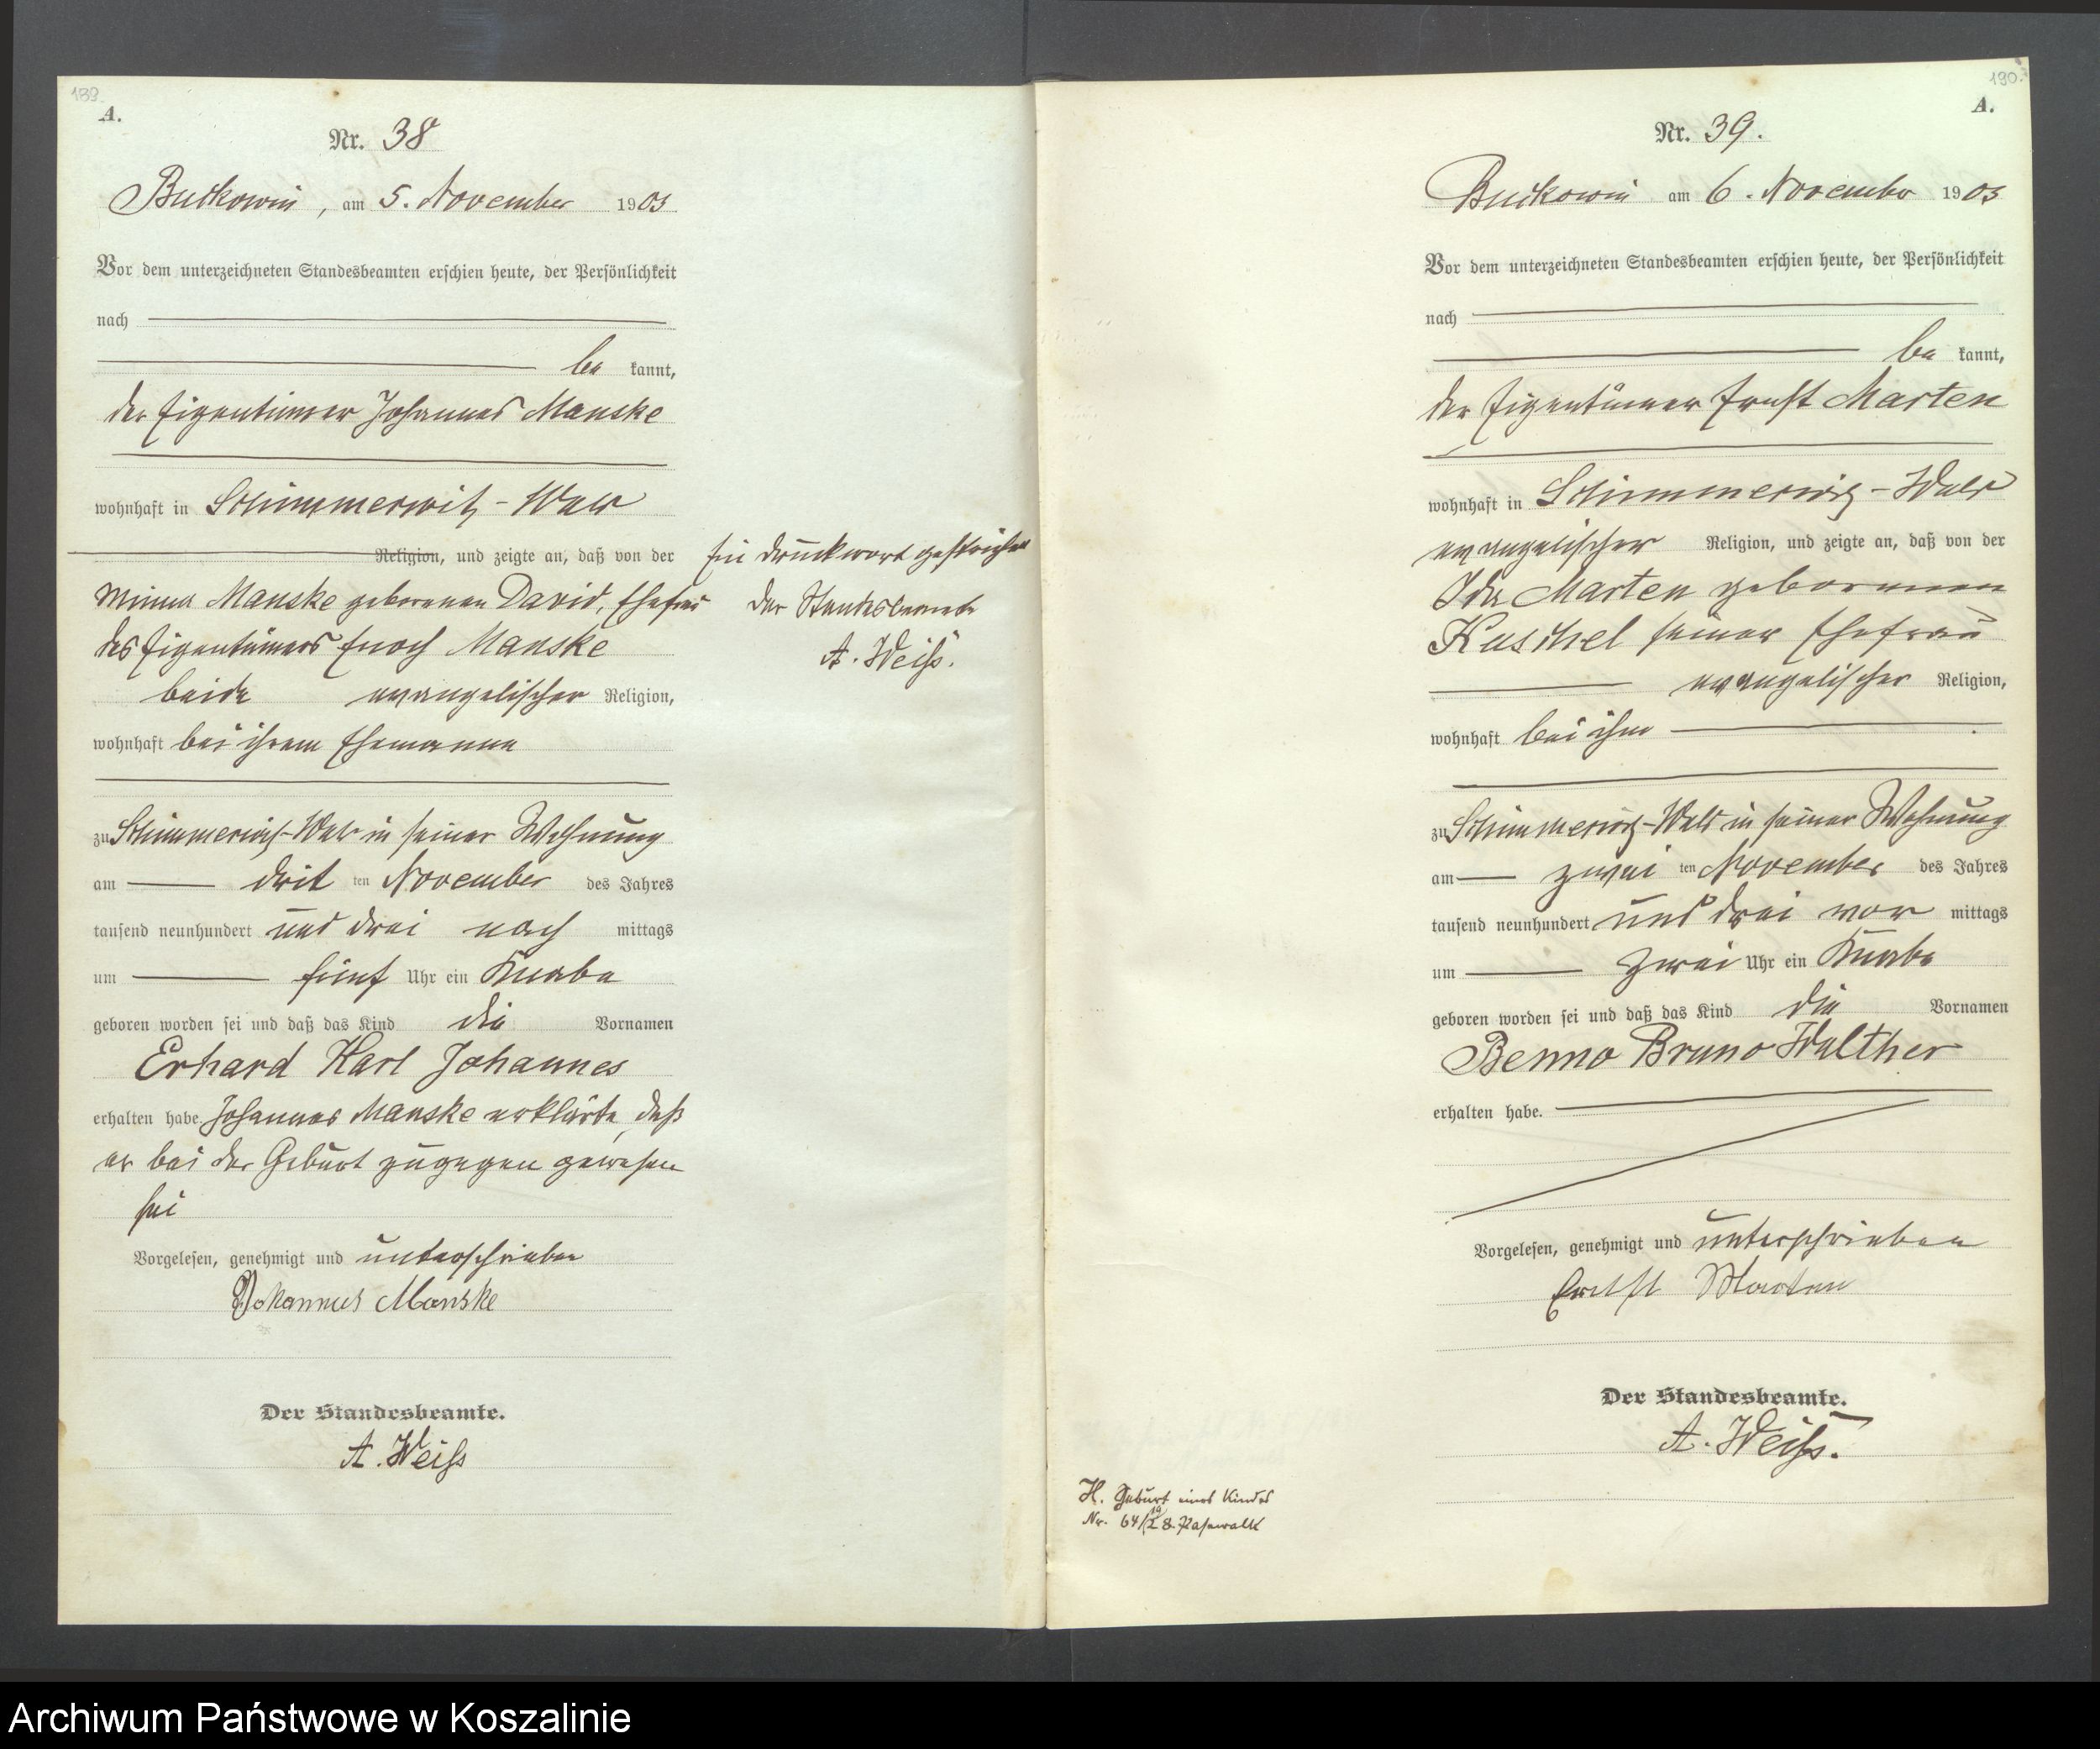 189.
A.
Nr. 38
Buckowin, am 5. November 1903
Vor dem unterzeichneten Standesbeamten erschien heute, der Persönlichkeit
nach
be kannt,
der Eigentümer Johannes Manske
wohnhaft in Schimmerwitz-Wald
Religion, und zeigte an, daß von der
Minna Manske geborenen David, Ehefrau
des Eigentümers Enoch Manske
beide evangelischer Religion,
wohnhaft bei ihrem Ehemanne
zu Schimmerwitz-Wald in seiner Wohnung
am drit ten November des Jahres
tausend neunhundert und drei nach mittags
um fünf Uhr ein Knabe
geboren worden sei und daß das Kind die Vornamen
Erhard Karl Johannes
erhalten habe. Johannes Manske erklärte, daß
er bei der Geburt zugegen gewesen
sei
Vorgelesen, genehmigt und unterschrieben
Johannes Manske
Der Standesbeamte.
A. Weiß
Ein Druckwort gestrichen
Der Standesbeamte
A. Weiß.
190.
A.
Nr. 39.
Buckowin am 6. November 1903
Vor dem unterzeichneten Standesbeamten erschien heute, der Persönlichkeit
nach
be kannt,
der Eigentümer Ernst Marten
wohnhaft in Schimmerwitz-Wald
evangelischer Religion, und zeigte an, daß von der
Ida Marten geborenen
Kuschel seiner Ehefrau
evangelischer Religion,
wohnhaft bei ihm
zu Schimmerwitz-Wald in seiner Wohnung
am zwei ten November des Jahres
tausend neunhundert und drei vor mittags
um zwei Uhr ein Knabe
geboren worden sei und daß das Kind die Vornamen
Benno Bruno Walther
erhalten habe.
Vorgelesen, genehmigt und unterschrieben
Ernst Marten
Der Standesbeamte.
A. Weiß.
H. Geburt eines Kindes
Nr. 64/ Pasewalk
Archiwum Państwowe w Koszalinie